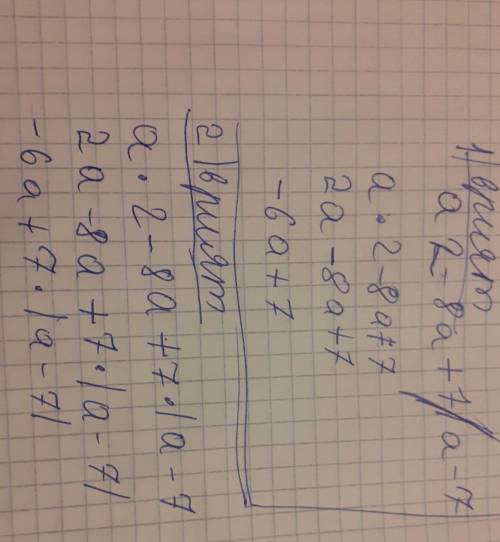 1) вриат
a 2 - 8a + 7 // a - 7
a · 2 - 8a + 7
2a - 8a + 7
-6a + 7
2) вриат
a · 2 - 8a + 7 · | a - 7
2a - 8a + 7 · | a - 7 |
-6a + 7 · | a - 7 |